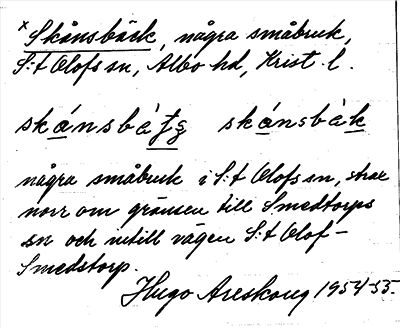 x Skånsbäck, några småbruk,
S:t Olofs sn, Albo hd, Krist. l.
skánsbàʃs skánsbàk
några småbruk i S:t Olofs sn, strax
norr om gränsen till Smedtorps
sn och intill vägen S:t Olof-
Smedstorp.
Hugo Areskoug 1954-55.